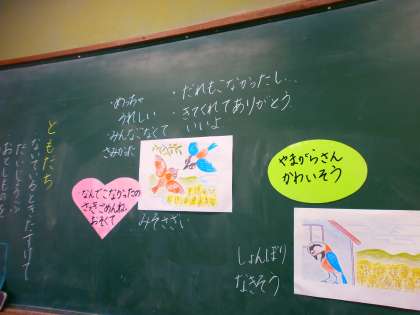 ともだち
ないているときたすけて
だいじょうぶ
おとしものを
・めっちゃ
うれしい
みんなこなくて
・だれもこなかったし…
・きてくれてありがとう
いいよ
なんでこなかったの
さっきごめんね、
おそくて
みそさざい
やまがらさん
かわいそう
しょんぼり
なきそう